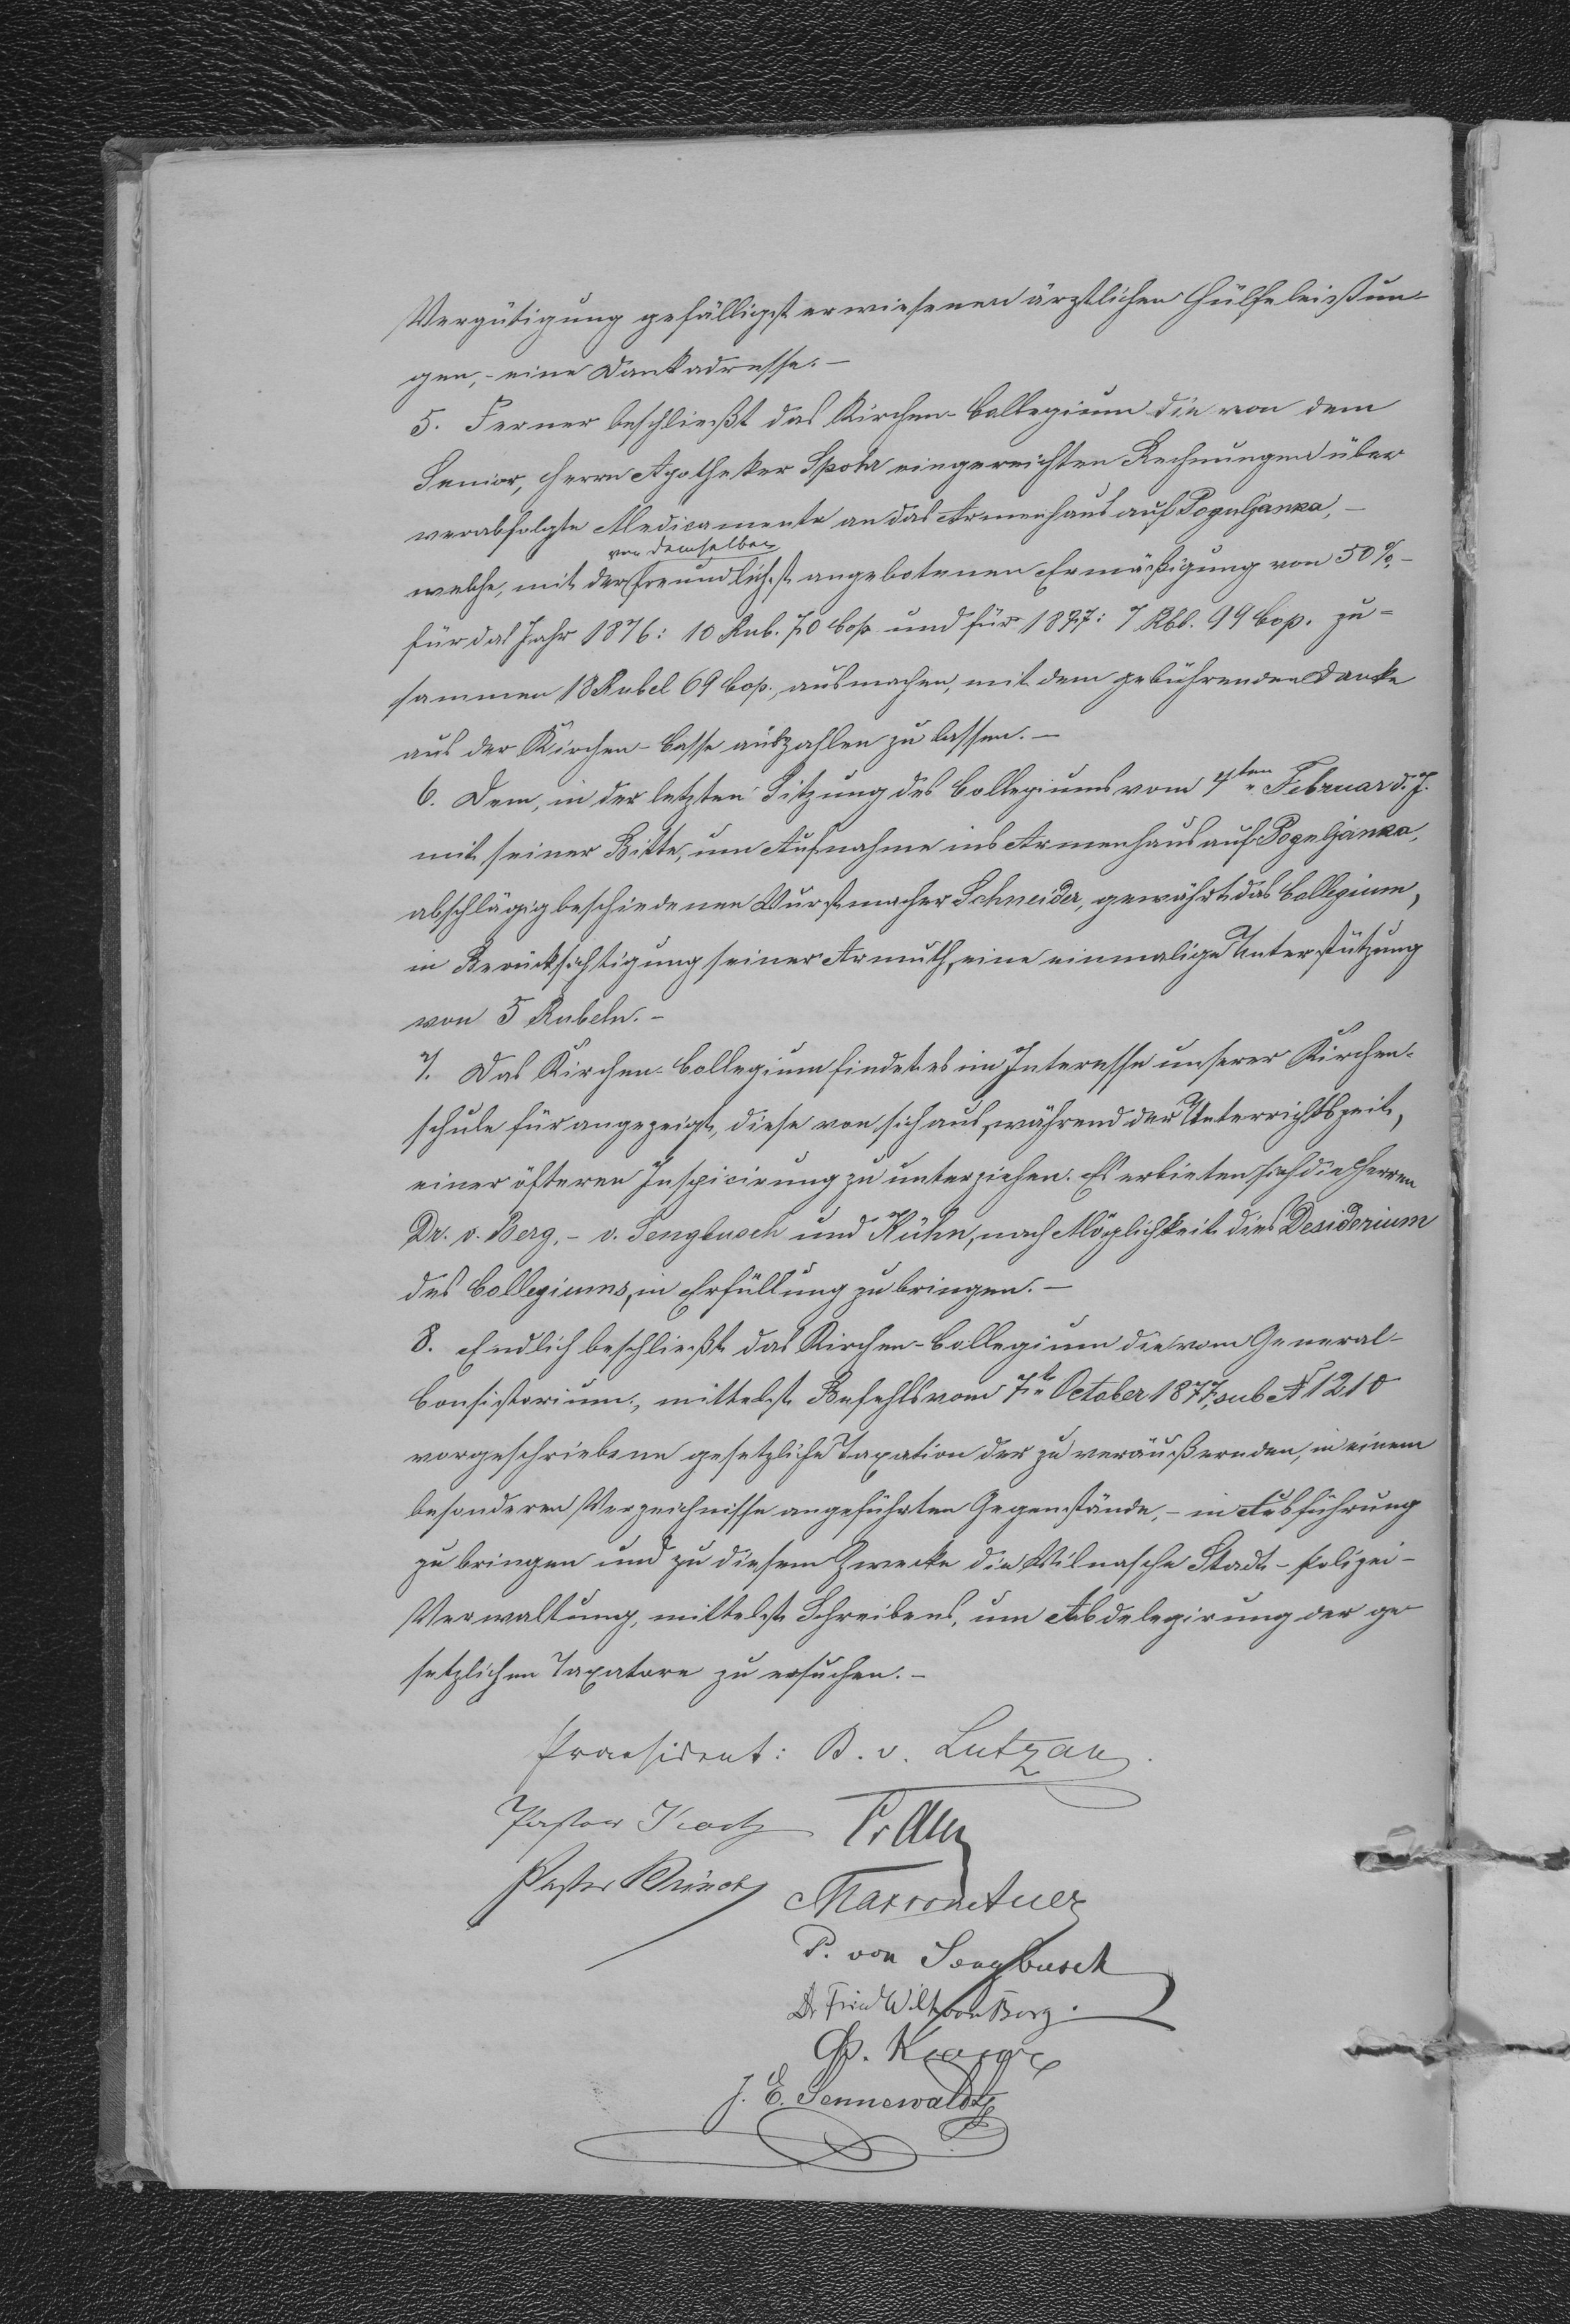 Vergütigung gefälligst erwiesenen ärztlichen Hülfeleistun-
gen, - eine Dankadresse. -
5. Ferner beschließt das Kirchen-Collegium die von dem
Senior, Herrn Apotheker Spohr eingereichten Rechnungen über
verabfolgte Medicamente an das Armenhaus auf Poguljanka, -
von demselben
welche, mit der freundlichst angebotenen Ermäßigung von 50%, -
für das Jahr 1876: 10 Rub. 70 Cop. und für 1877: 7 Rbl. 99 Cop. zu=
sammen 18 Rubel 69 Cop., ausmachen, mit dem gebührenden Danke
aus der Kirchen-Casse auszahlen zu lassen. -
6. Dem, in der letzten Sitzung des Collegiums vom 4ten Februar d. J.
mit seiner Bitte, um Aufnahme ins Armenhaus auf Poguljanka,
abschlägig beschiedenen Wurstmacher Schneider, gewährt das Collegium,
in Berücksichtigung seiner Armuth, eine einmalige Unterstützung
von 5 Rubeln. -
7. Das Kirchen-Collegium findet es im Interesse unserer Kirchen-
schule für angezeigt, diese von sich aus, während der Unterrichtszeit,
einer öfteren Inspicirung zu unterziehen. Es erbieten sich die Herren
Dr. v. Berg, - v. Sengbusch und Kühn, nach Möglichkeit dies Desiderium
des Collegiums, in Erfüllung zu bringen. -
8. Endlich beschließt das Kirchen-Collegium die vom General-
Consistorium, mittelst Befehls vom 7t October 1877, sub № 1210
vorgeschriebene gesetzliche Taxation der zu veräußernden, in einem
besonderen Verzeichnisse angeführten Gegenstände, - in Ausführung
zu bringen und zu diesem Zwecke die Wilnasche Stadt-Polizei-
Verwaltung, mittelst Schreibens, um Abdelegirung der ge-
setzlichen Taxatore zu ersuchen. -
Praesident: B. v. Lutzau.
Pastor
Pastor
P. von Sengbusch
Dr Fried Wilh von Berg.
J. E. Sennewaldt